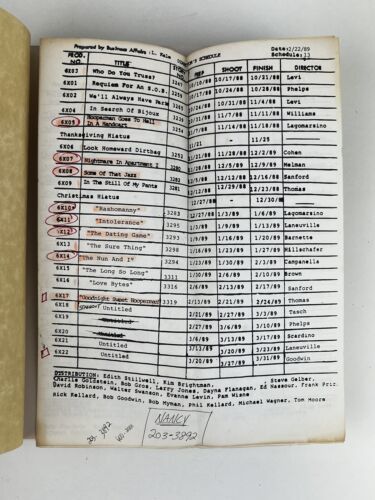 Prepared by Business Affairs: L. DIRECTOR'S SCHEDULE Date: 2/22/89
Schedule: 13
PROD. NO. TITLE PREP SHOOT FINISH DIRECTOR
6X03 Who Do You Trust? 10/17/88 10/21/88 Levi
6X01 Requiem For An S.O.B. 10/24/88 10/28/88 Phelps
6X02 We'll Always Have 10/31/88 11/4/88 Levi
6X04 In Search Of Bijoux 11/7/88 11/11/88 Williams
6X05 Hooperman Goes To Hell In A Handcart 3254 11/14/88 11/18/88 Lagomarsino
Thanksgiving Hiatus 11/21 - 11/25
6X06 Look Homeward Dirtbag 3252 11/28/88 12/2/89 Cohen
6X07 Nightmare In Apartment 3280 12/5/88 12/9/89 Helman
6X08 Some Of That Jazz 3282 12/12/88 12/16/88 Sanford
6X09 In The Still Of My Pants 3281 12/29/88 12/23/88 Thomas
Christmas Hiatus 12/27/88 - 12/30/88
6X10 "Rashomanny" 3283 12/27/88 1/3/89 1/6/89 Lagomarsino
6X11 "Intolerance" 3295 1/3/89 1/9/89 1/13/89 Laneuville
6X12 "The Dating Game" 3293 1/9/89 1/16/89 1/20/89 Barnette
6X13 "The Sure Thing" 3298 1/16/89 1/23/89 1/27/89
6X14 "The Nun And I" 3294 1/23/89 1/30/89 2/3/89 Campanella
6X15 "The Long So Long" 3311 1/30/89 2/6/89 2/10/89 Brown
6X16 "Love Bytes" 3316 2/6/89 2/13/89 2/17/89 Sanford
6X17 "Goodnight Sweet Hooperman" 3319 2/13/89 2/21/89 2/24/89 Thomas
6X18 Untitled 2/21/89 2/27/89 3/3/89 Tasch
6X19 Untitled 2/27/89 3/6/89 3/10/89 Phelps
6X20 Untitled 3/6/89 3/13/89 3/17/89 Scardino
6X21 Untitled 3/13/89 3/20/89 3/23/89 Laneuville
6X22 Untitled 3/20/89 3/27/89 3/31/89 Goodwin
DISTRIBUTION: Edith Stillwell, Kim Brightman, Steve Gelber,
Charlie Goldstein, Bob Gros, Larry Jones, Dayna Flanagan, Ed Nassour, Frank
David Robinson, Walter Swanson, Evanna Levin, Pam Wisne
Rick Kellard, Bob Goodwin, Bob Myman, Phil Kellard, Michael Wagner, Tom Moore
NANCY
203-3892